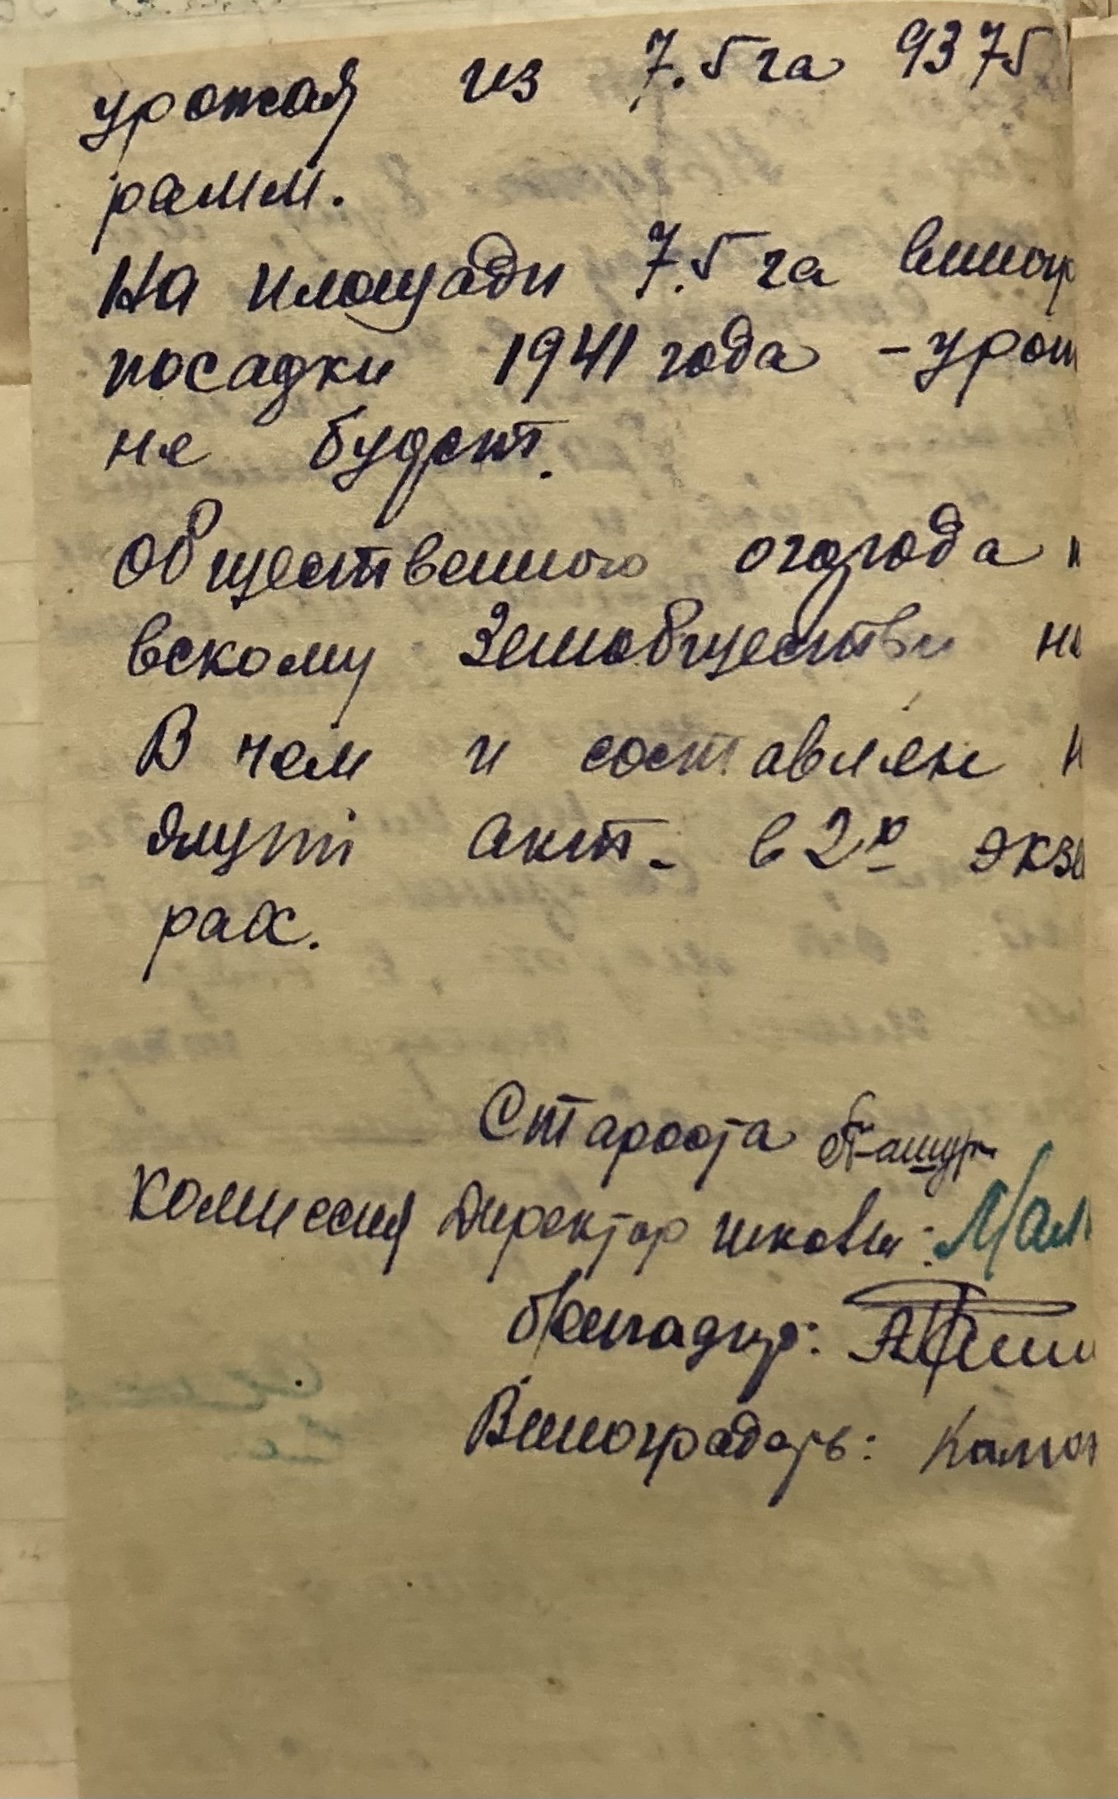 урожая из 7.5 га 9375
рамм.
На площади 7.5 га виногр
посадки 1941 года - урож
не будет.
Общественного огорода
вскому Земобществу не
В чем и составлен н
ящий акт. в 2х экзе
рах.
Староста
Комиссия Директор школы:
бригадир:
Виноградарь: